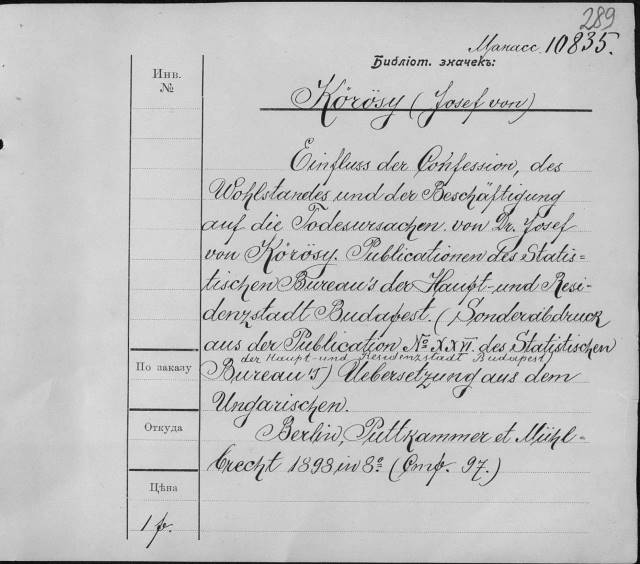 289
Манасс. 10835.
Библіот. значекъ:
Инв.
№
Körösy (Josef von)
Einfluss der Confession, des
Wohlstandes und der Beschäftigung
auf die Todesursachen von Dr. Josef
von Körösy. Publicationen des Statis=
tischen Bureau's der Haupt-und Resi-
denzstadt Budapest. (Sonderabdruck
aus der Publication № XXVI. des Statistischen
der Haupt-und Residenzstadt Budapest
Bureau's) Uebersetzung aus dem
Ungarischen.
По заказу
Откуда
Berlin, Puttkammer et Mühl=
brecht 1898 in 8º (Стр. 97.)
Цѣна
1 р.